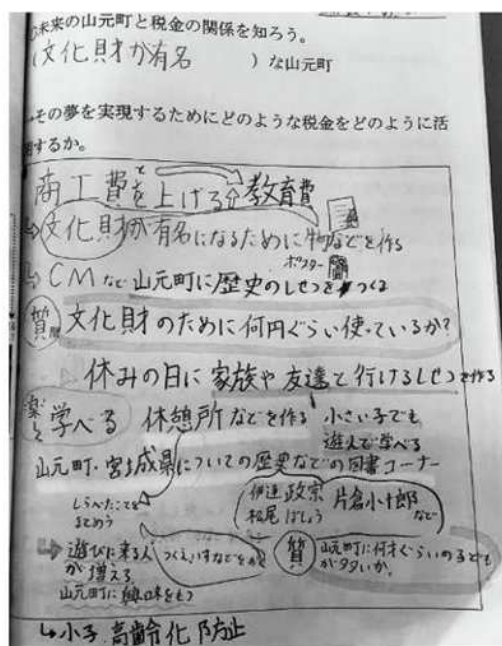 未来の山元町と税金の関係を知ろう。
(文化財が有名　　)な山元町
その夢を実現するためにどのような税金をどのように活
用するか。
商工費を上げる⇧と教育費
↳文化財が有名になるために物などを作る
ポスター
↳CMなど山元町に歴史のしせつをつくる
質問 文化財のために何円ぐらい使っているか?
休みの日に家族や友達と行けるしせつを作る
楽しく学べる 休憩所などを作る 小さい子でも
遊んで学べる
山元町・宮城県についての歴史などの図書コーナー
しらべたことを
まとめう
伊達政宗 片倉小十郎
松尾ばしょう など
つくえ、いすなどをおく
➡遊びに来る人
が増える
山元町に興味をもつ
質 山元町に何才ぐらいの子ども
が多いか。
↳小子高齢化防止